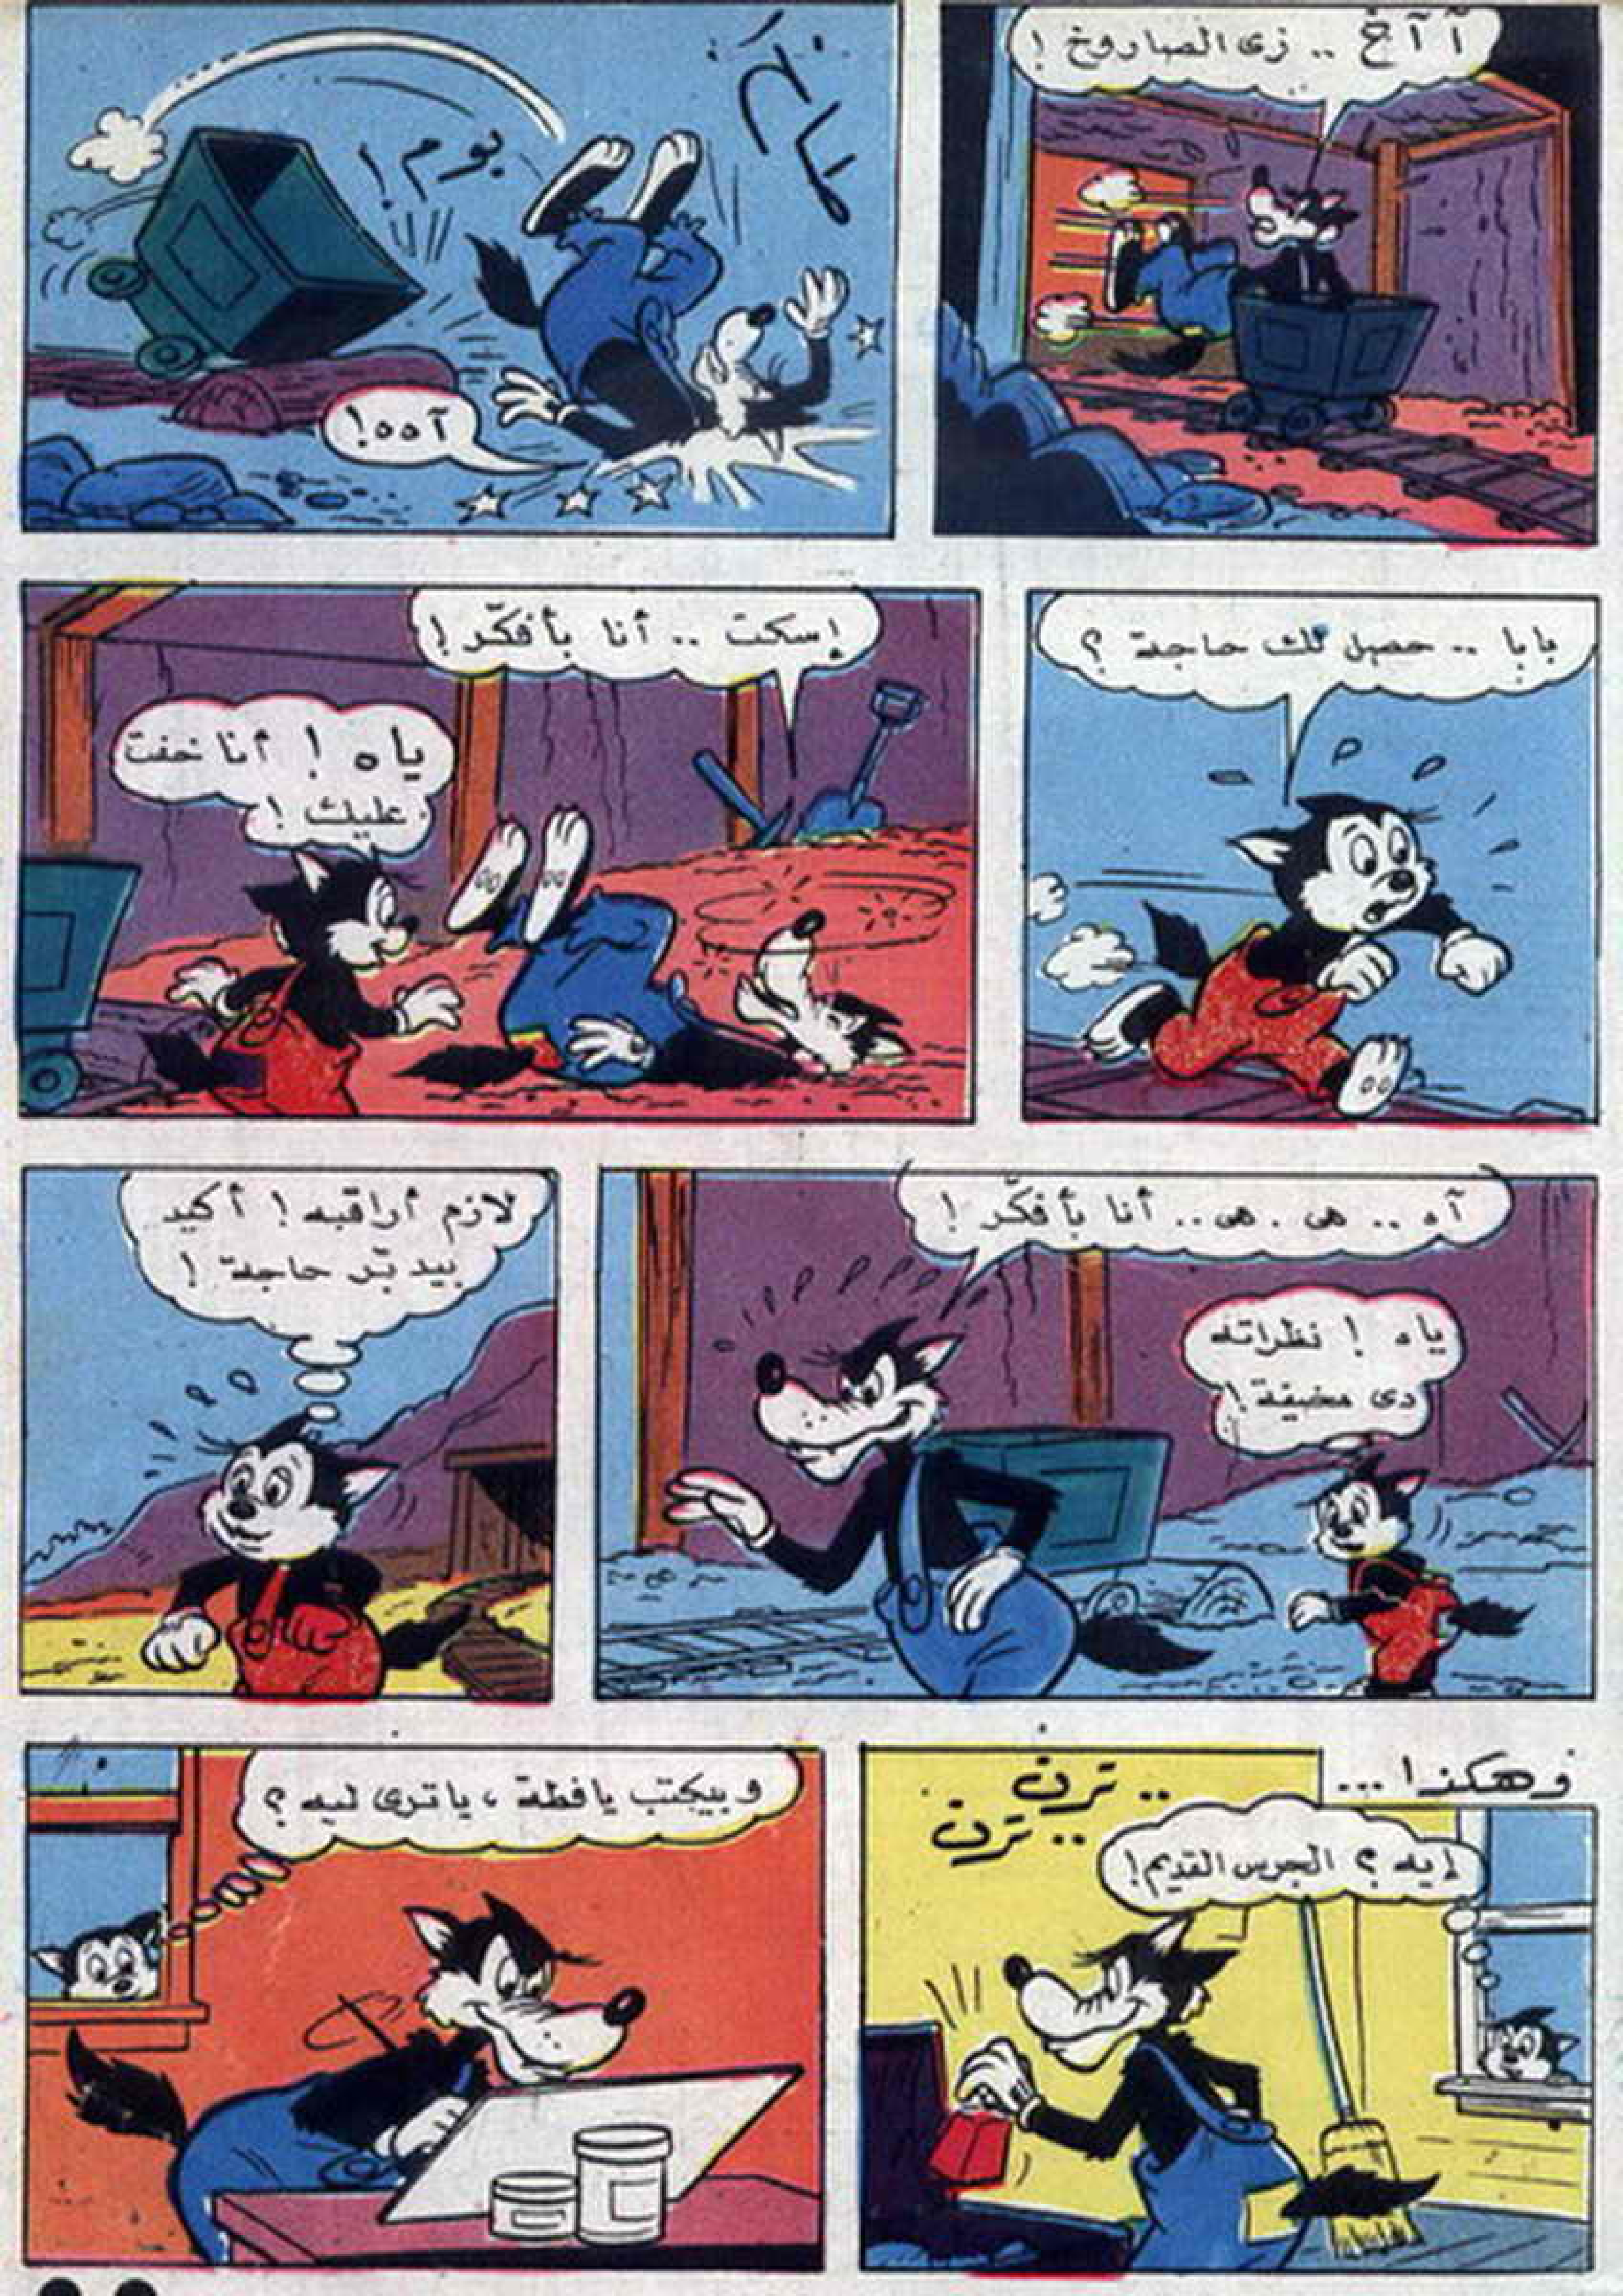 آ آ آخ .. زى الصاروخ !
بوم !
آ ه ه !
بابا .. حصل لك حاجة ؟
إسكت .. أنا بأفكّر !
ياه ! أنا خفت
عليك !
آه .. هى . هى .. أنا بأفكّر !
ياه ! نظراته
دى مخيفة !
لازم أراقبه ! أكيد
بيدبّر حاجة !
وهكذا ...
.. ترن
.. ترن
إيه ؟ الجرس القديم !
وبيكتب يافطة ، ياترى ليه ؟